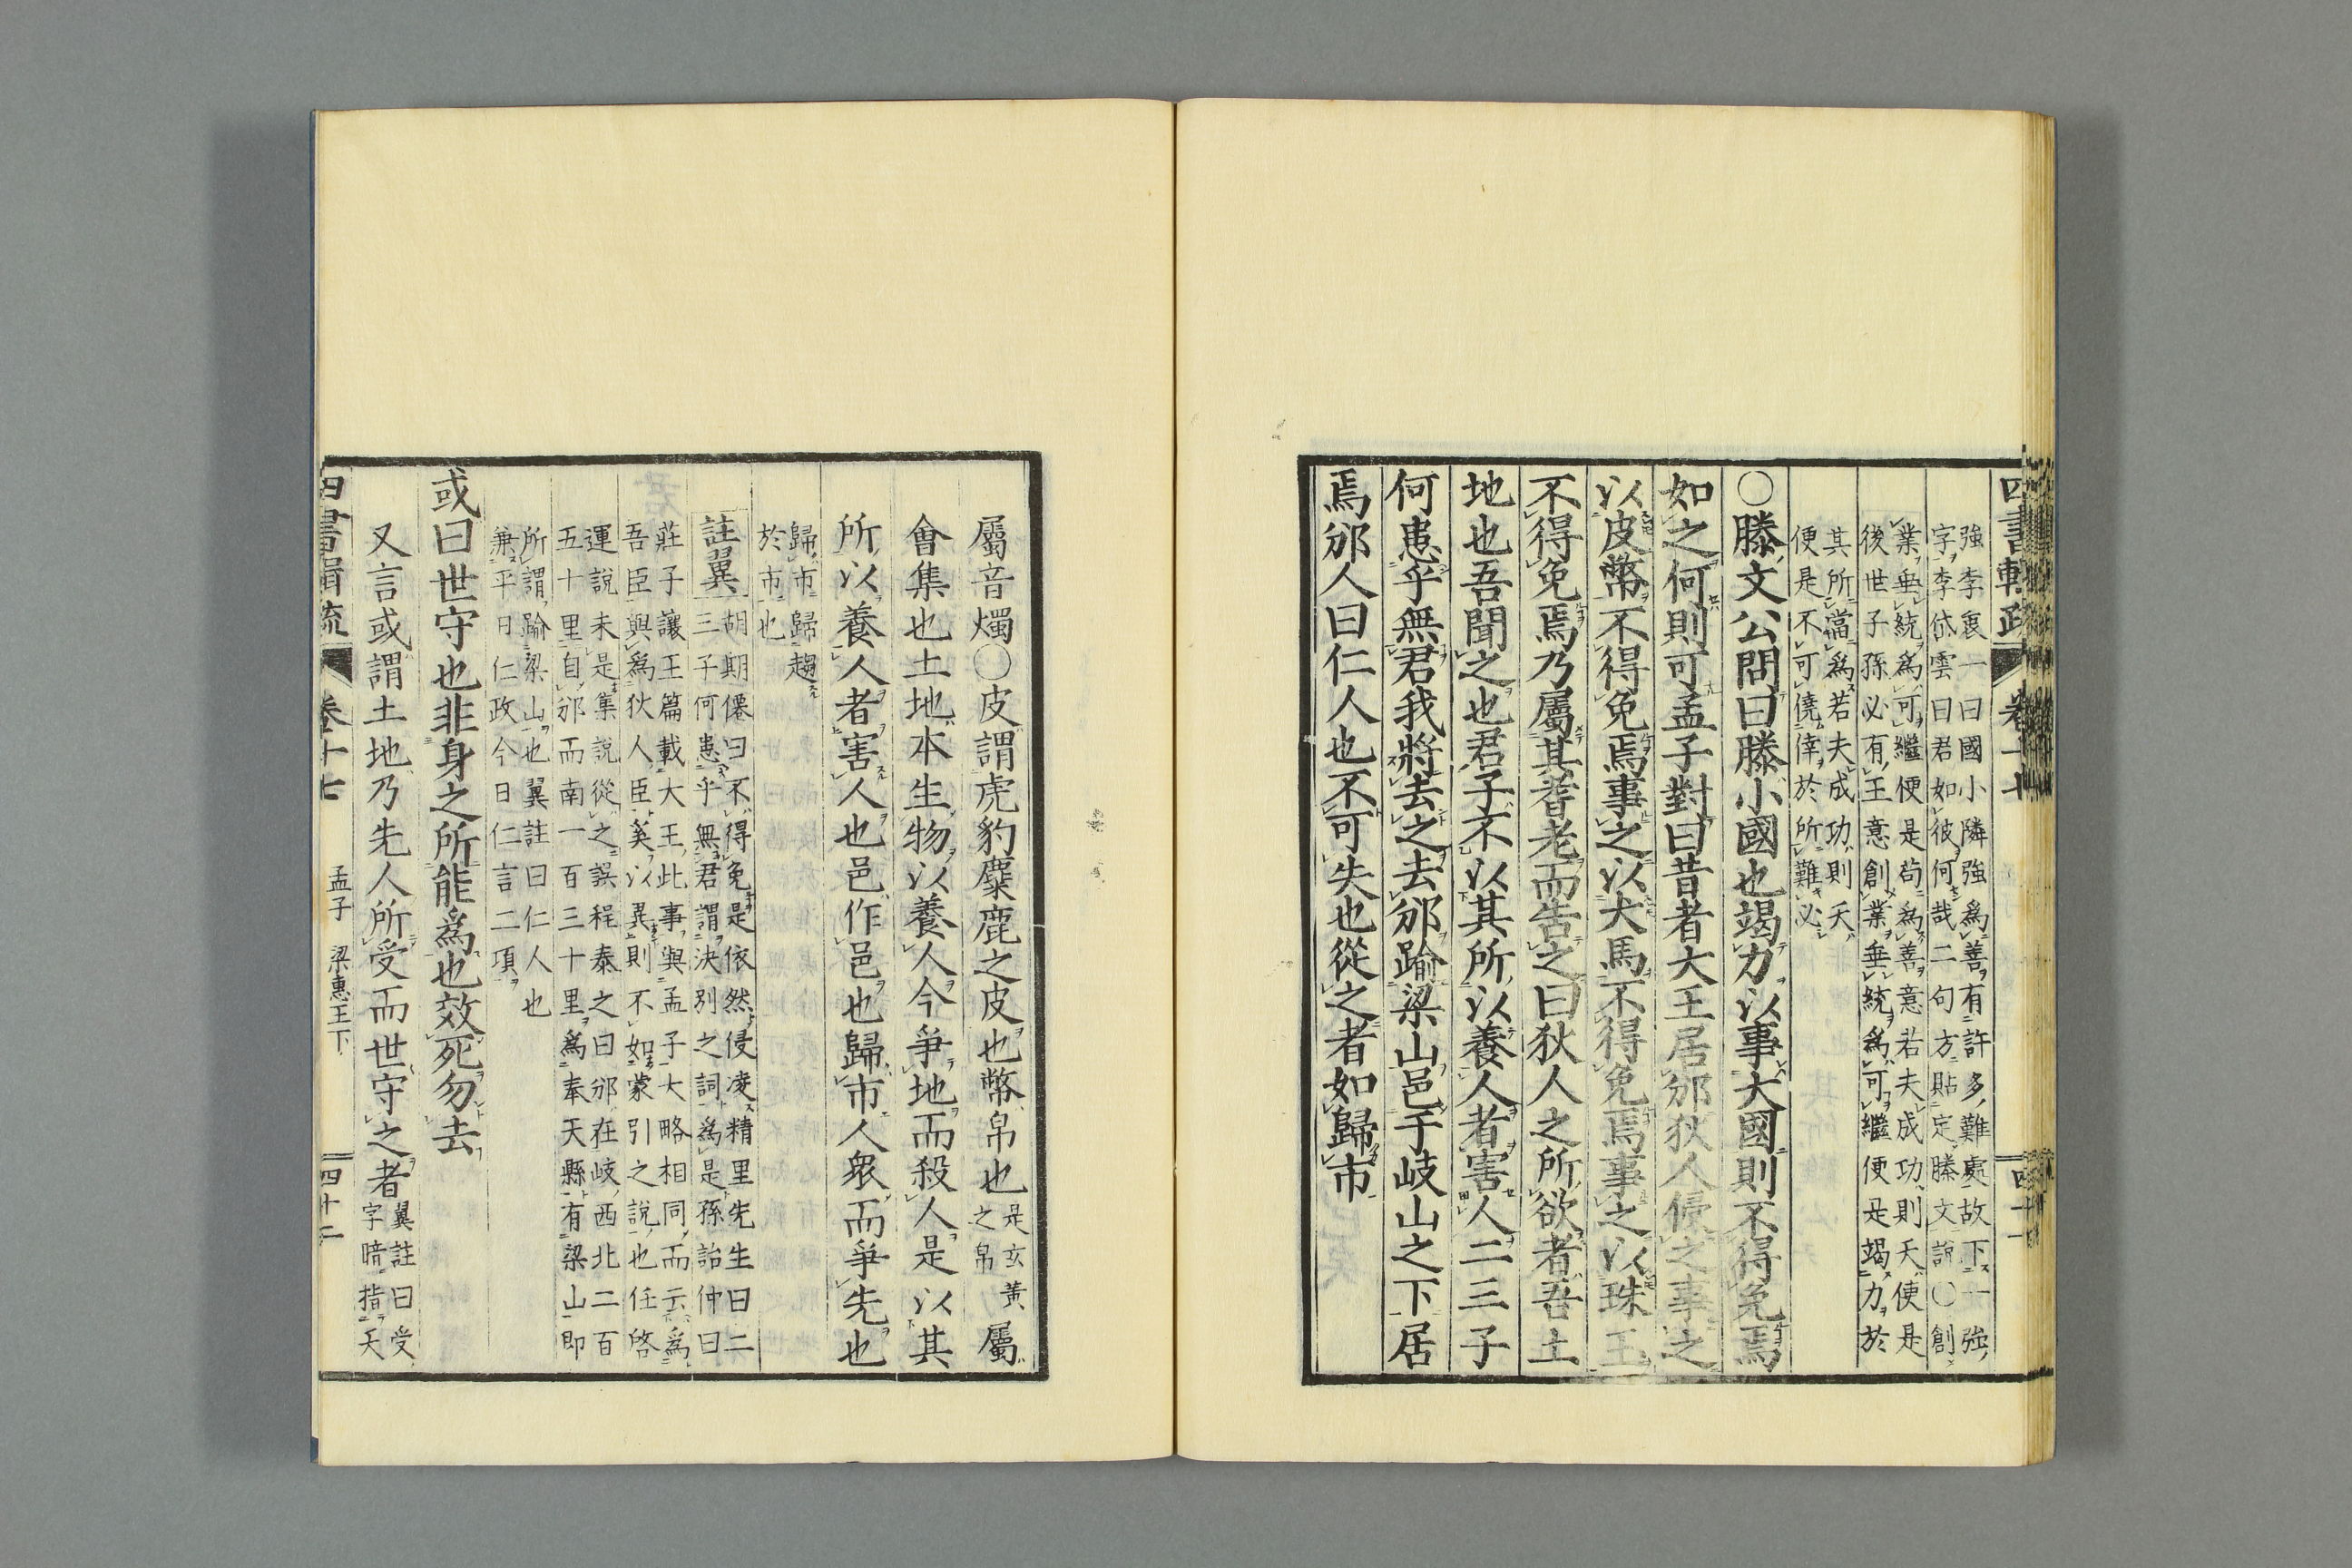 四書輯疏 卷十七 四十一
強李衷一曰國小隣強爲善有許多難處故下一強
字李岱雲曰君如彼何哉二句方貼定滕文說〇創
業垂統爲可繼便是苟爲善意若夫成功則天便是
後世子孫必有王意創業垂統爲可繼便是竭力於
其所當爲若夫成功則天
便是不可僥倖於所難必
〇滕文公問曰滕小國也竭力以事大國則不得免焉
如之何則可孟子對曰昔者大王居邠狄人侵之事之
以皮幣不得免焉事之以犬馬不得免焉事之以珠玉
不得免焉乃屬其耆老而告之曰狄人之所欲者吾土
地也吾聞之也君子不以其所以養人者害人二三子
何患乎無君我將去之去邠踰梁山邑于岐山之下居
焉邠人曰仁人也不可失也從之者如歸市
屬音燭〇皮謂虎豹麋鹿之皮也幣帛也是玄黃之帛屬
會集也土地本生物以養人今爭地而殺人是以其
所以養人者害人也邑作邑也歸市人衆而爭先也
歸市歸趨
於市也
註翼 胡期僊曰不得免是依然侵凌精里先生曰二
三子何患乎無君謂決別之詞爲是孫詒仲曰
莊子讓王篇載大王此事與孟子大略相同而云爲
吾臣與爲狄人臣奚以異則不如蒙引之說也任啓
運說未是集說從之誤程泰之曰邠在岐西北二百
五十里自邠而南一百三十里爲奉天縣有梁山即
所謂踰梁山也翼註曰仁人也
兼平日仁政今日仁言二項
或曰世守也非身之所能爲也效死勿去
又言或謂土地乃先人所受而世守之者翼註曰受字暗指天
四書輯疏 卷十七 孟子 梁惠王下 四十二